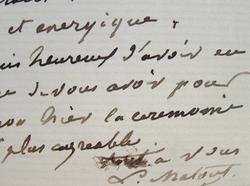 et energique,
uis heureux d'avoir eu
e de vous avoir pour
hier la ceremonie
plus agreable
tout à vous
L. Matout